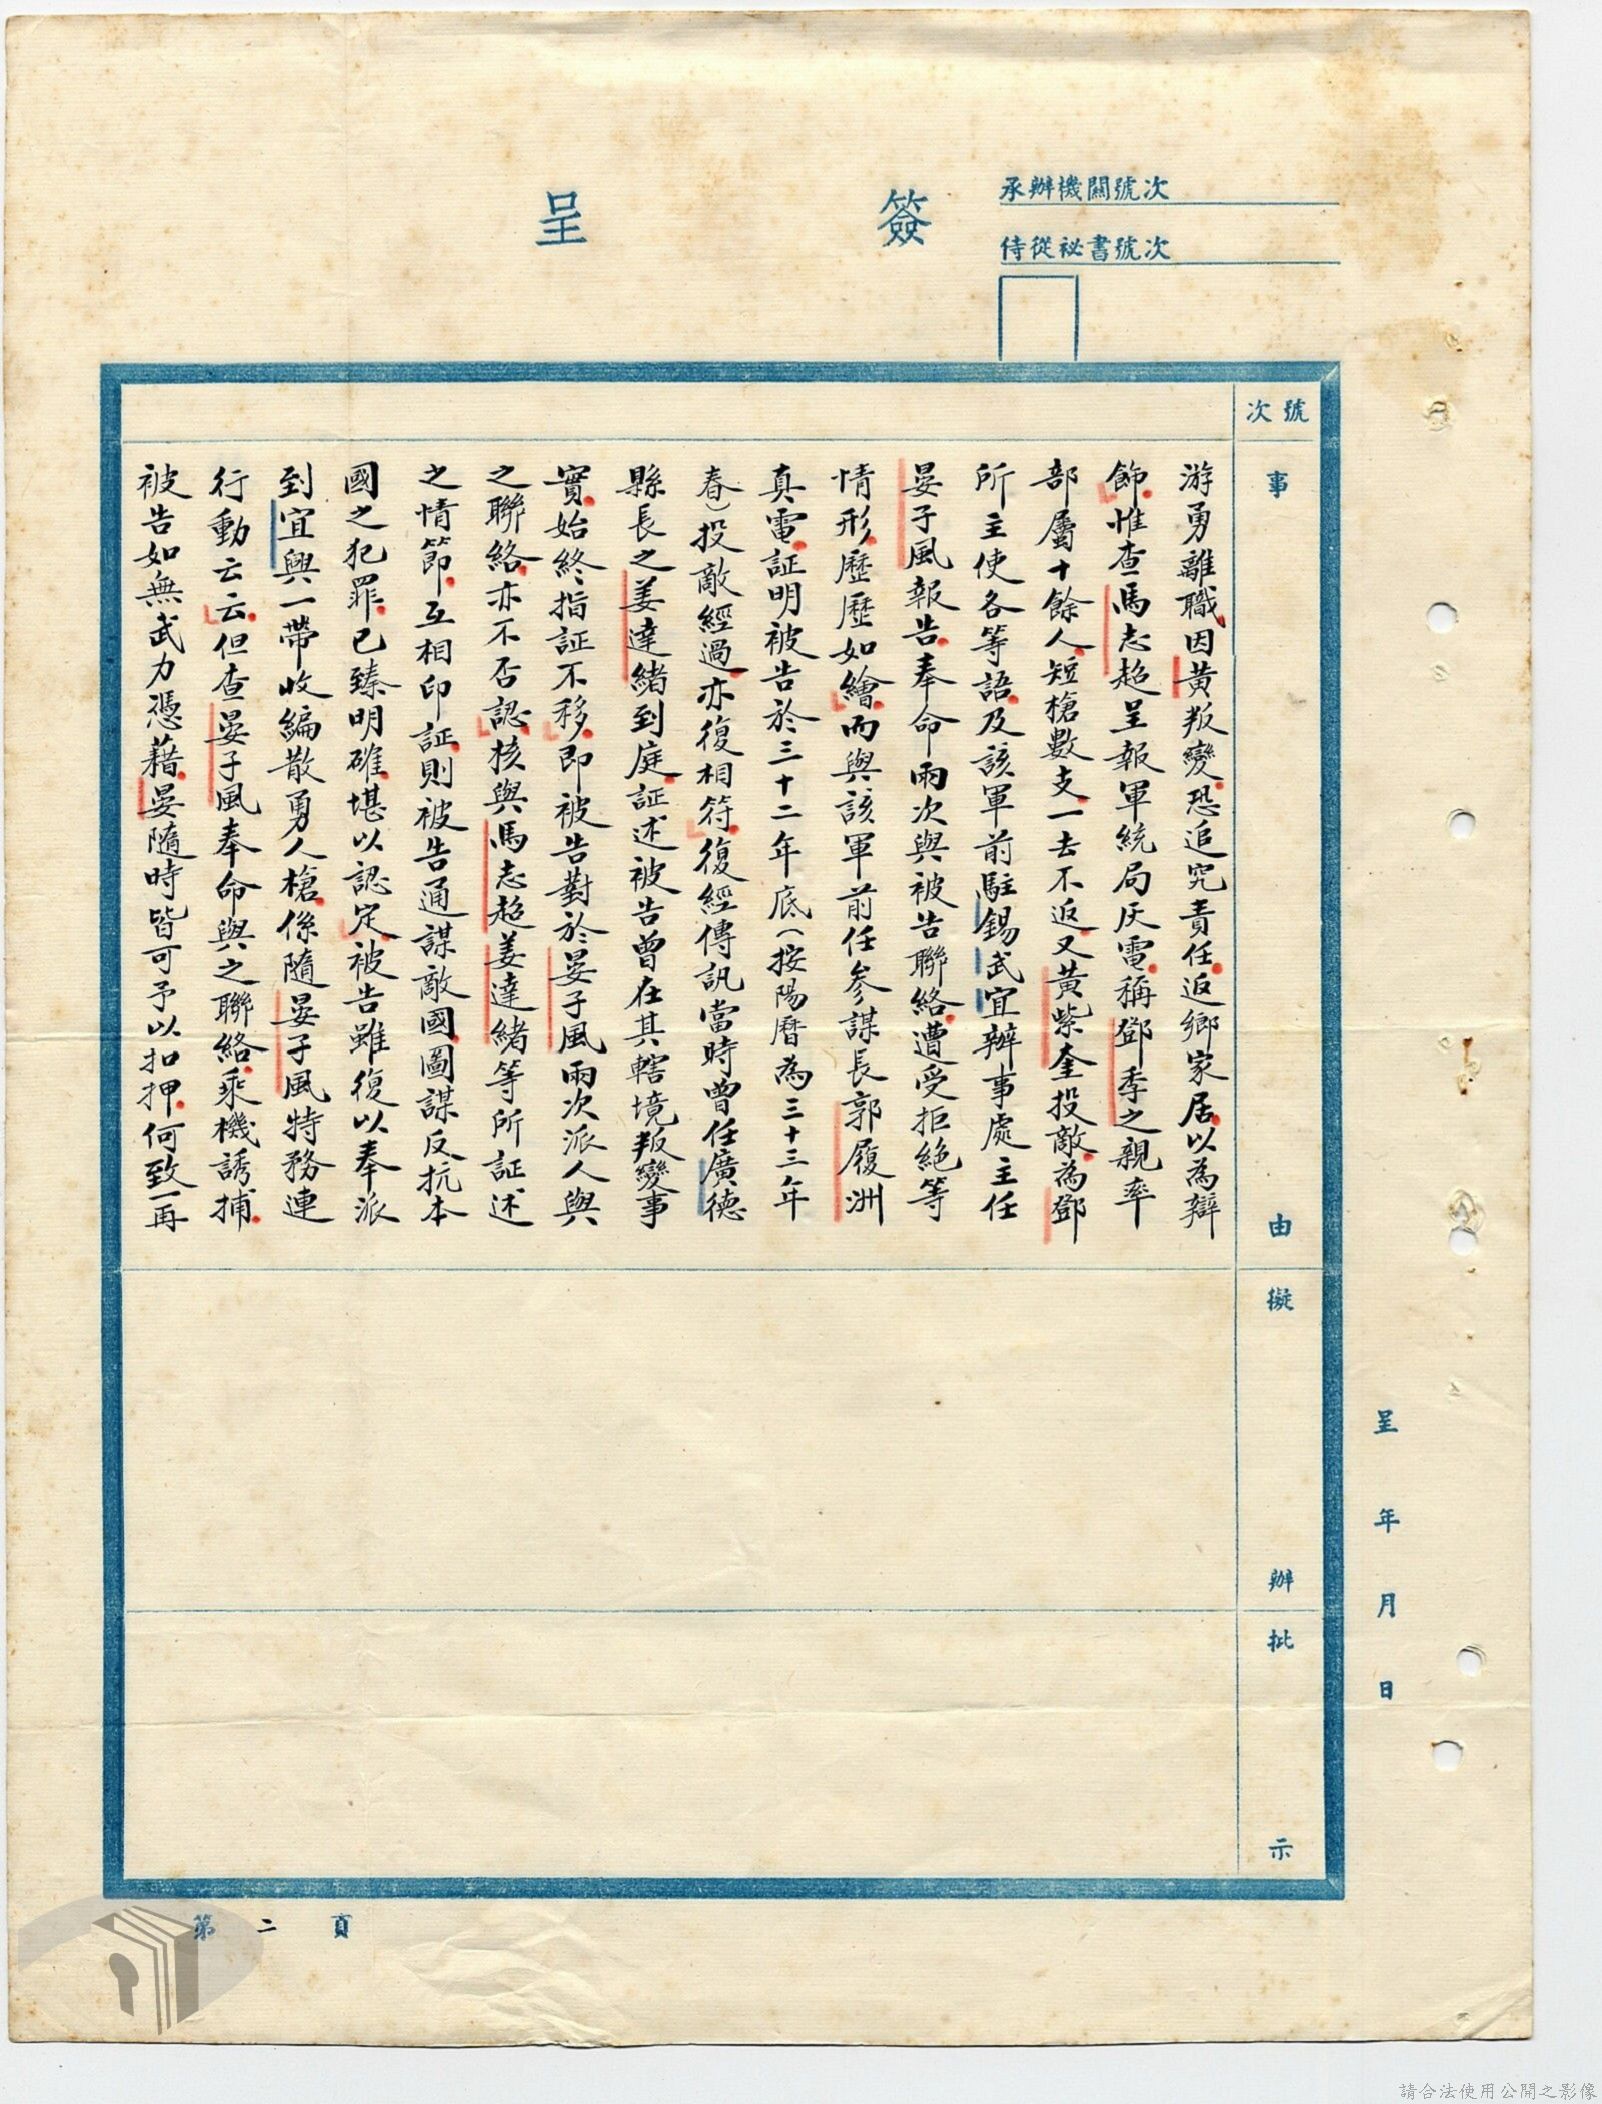 承辦機關號次
侍從祕書號次
簽呈
號次
事由
擬辦
批示
呈 年 月 日
游勇離職因黃叛變恐追究責任返鄉家居以為辯
飾惟查馬志超呈報軍統局灰電稱鄧季之親率
部屬十餘人短槍數支一去不返又黃紫奎投敵為鄧
所主使各等語及該軍前駐錫武宜辦事處主任
晏子風報告奉命兩次與被告聯絡遭受拒絕等
情形歷歷如繪而與該軍前任參謀長郭履洲
真電証明被告於三十二年底（按陽曆為三十三年
春）投敵經過亦復相符復經傳訊當時曾任廣德
縣長之姜達緒到庭証述被告曾在其轄境叛變事
實始終指証不移即被告對於晏子風兩次派人與
之聯絡亦不否認核與馬志超姜達緒等所証述
之情節互相印証則被告通謀敵國圖謀反抗本
國之犯罪已臻明確堪以認定被告雖復以奉派
到宜興一帶收編散勇人槍係隨晏子風特務連
行動云云但查晏子風奉命與之聯絡乘機誘捕
被告如無武力憑藉晏隨時皆可予以扣押何致一再
第二頁
請合法使用公開之影像